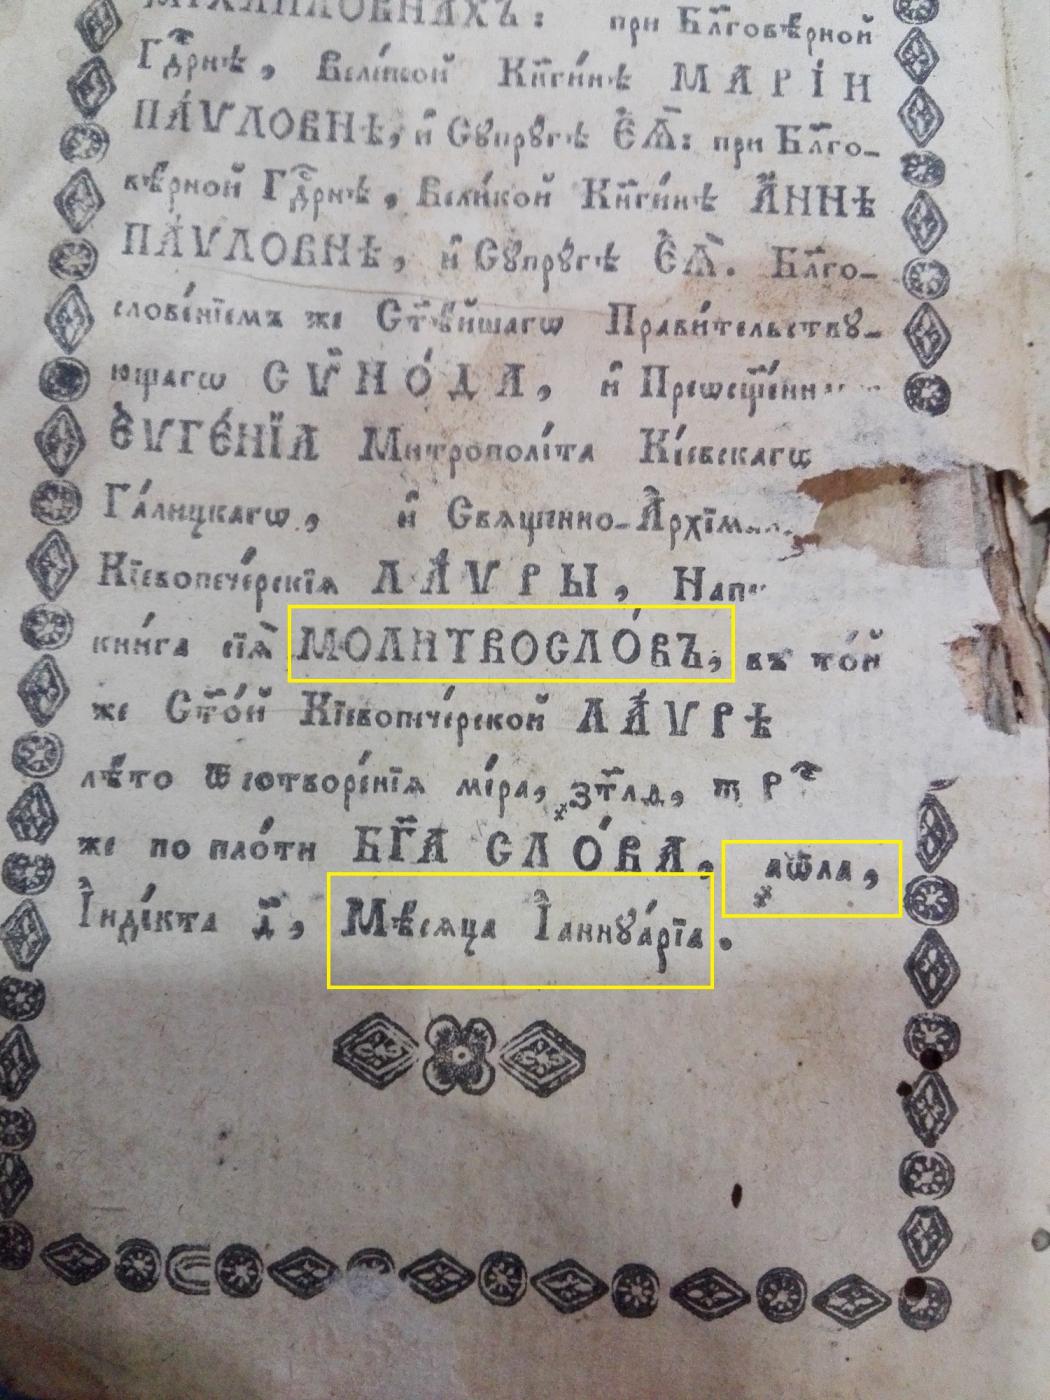 МІХАИЛОВНАХЪ: при Бл҃говѣ́рной
Гдⷭ҇рнѣ, Вели́кой Кн҃ги́нѣ МАРІ́И
ПА́ѴЛОВНѢ, и҆ Сꙋпрꙋ́гѣ Є҆Ѧ̀: при Бл҃го-
вѣ́рной Гдⷭ҇рнѣ, Вели́кой Кн҃ги́нѣ А҆́ННѢ
ПА́ѴЛОВНѢ, и҆ Сꙋпрꙋ́гѣ Є҆Ѧ̀. Бл҃го-
слове́нїемъ же Ст҃ѣ́йшагѡ Прави́тельствꙋ-
ющагѡ СѴНО́ДА, и҆
Є҆ѴГЕ́НЇА Митрополі́та Кі́евскагѡ
Га́лицкагѡ, и҆ Свѧще́нно-
Кїевопече́рскїѧ ЛА́ѴРЫ,
кни́га сїѧ̀ МОЛИТВОСЛО́ВЪ, въ то́й
же Ст҃о́й Кїевопече́рской ЛА́ѴРѢ
лѣ́то ѿ сотворе́нїѧ мі́ра, ҂зт҃лѳ,
же по пло́ти БГ҃А СЛО́ВА, ҂аѿла,
І҆нді́кта д҃, Мѣ́сѧца І҆аннꙋа́рїа.